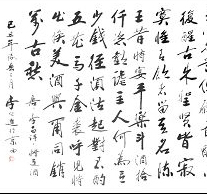 醒古來聖賢皆寂
寞惟有飲者留其名陳
王昔時宴平樂斗酒
恣歡謔主人何為言
少錢徑須沽取對君酌
五花馬千金裘呼兒將
出換美酒與爾同銷
萬古愁 李白詩將進酒
己丑年